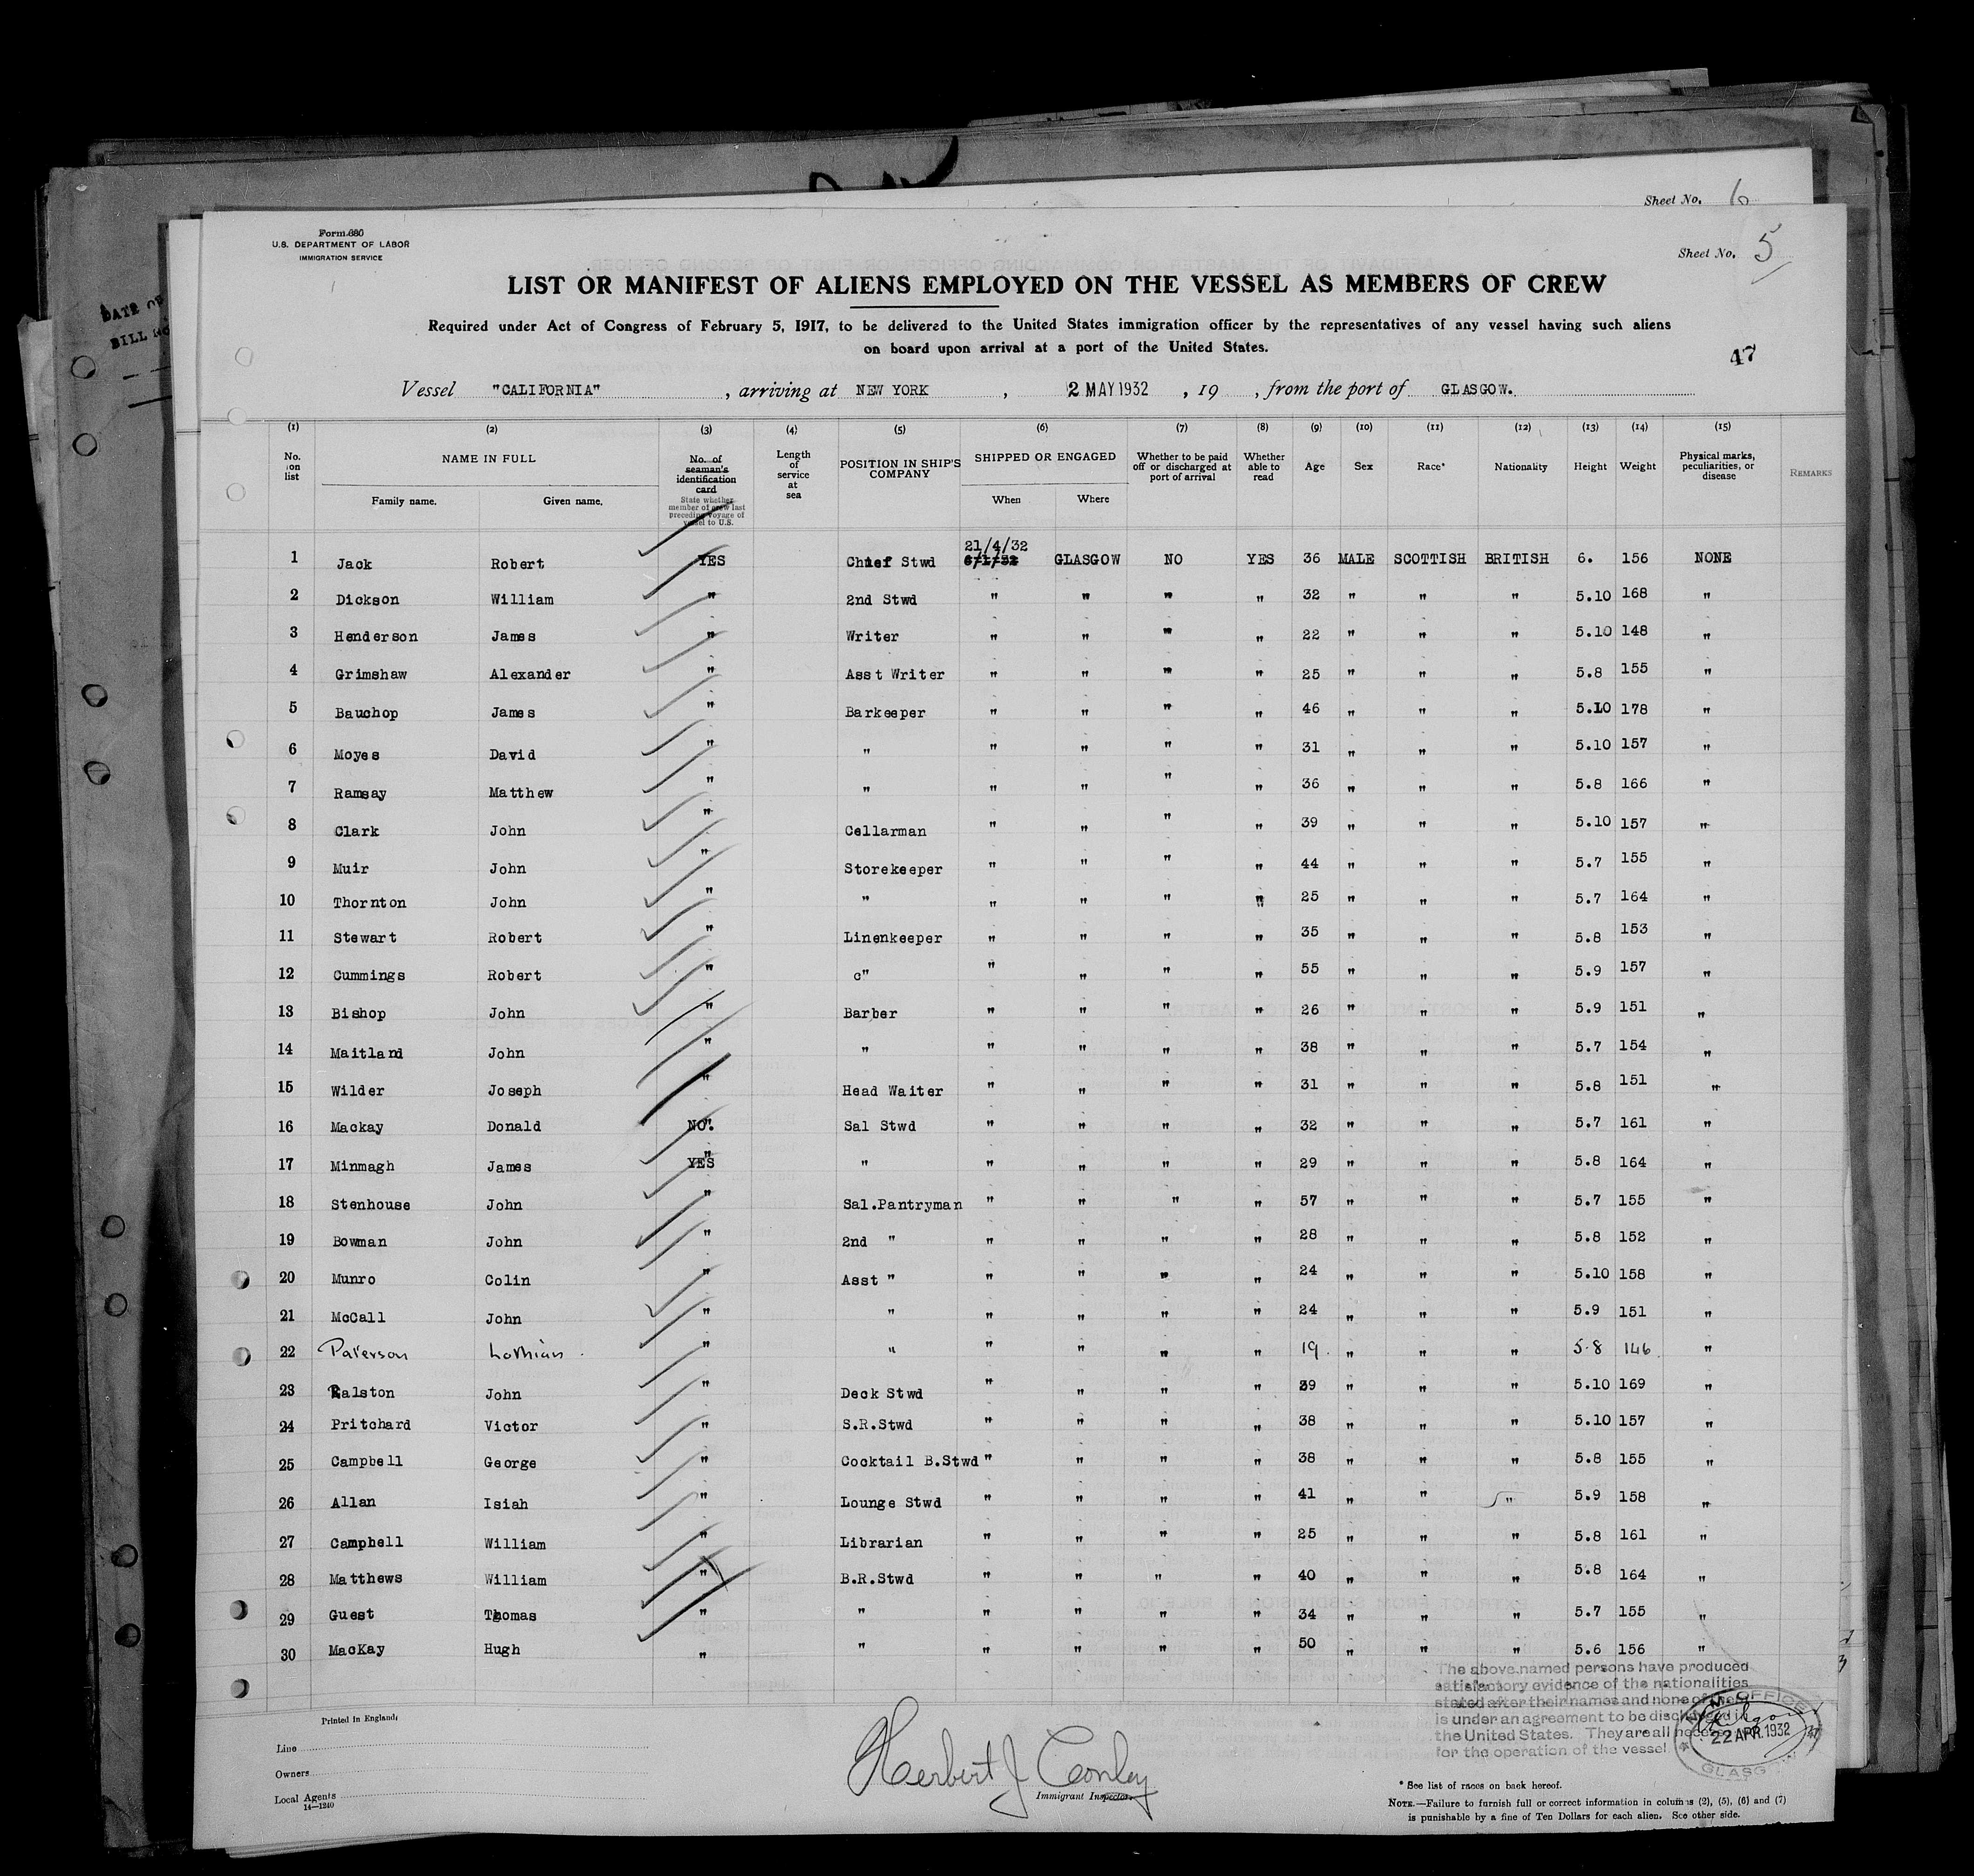 DATE OF
BILL NO
Sheet No. 6
Form 680
U.S. DEPARTMENT OF LABOR
IMMIGRATION SERVICE
Sheet No. 5
LIST OR MANIFEST OF ALIENS EMPLOYED ON THE VESSEL AS MEMBERS OF CREW
Required under Act of Congress of February 5, 1917, to be delivered to the United States immigration officer by the representatives of any vessel having such aliens
on board upon arrival at a port of the United States.
47
Vessel "CALIFORNIA", arriving at NEW YORK, 2 MAY 1932, 19 , from the port of GLASGOW.
(1) (2) (3) (4) (5) (6) (7) (8) (9) (10) (11) (12) (13) (14) (15)
No. on list NAME IN FULL Family name. Given name. No. of seaman's identification card State whether member of crew last preceding voyage of vessel to U.S. Length of service at sea POSITION IN SHIP'S COMPANY SHIPPED OR ENGAGED When Where Whether to be paid off or discharged at port of arrival Whether able to read Age Sex Race* Nationality Height Weight Physical marks, peculiarities, or disease REMARKS
21/4/32
1 Jack Robert YES Chief Stwd 6/1/32 GLASGOW NO YES 36 MALE SCOTTISH BRITISH 6. 156 NONE
2 Dickson William " 2nd Stwd " " " " 32 " " " 5.10 168 "
3 Henderson James " Writer " " " " 22 " " " 5.10 148 "
4 Grimshaw Alexander " Asst Writer " " " " 25 " " " 5.8 155 "
5 Bauchop James " Barkeeper " " " " 46 " " " 5.10 178 "
6 Moyes David " " " " " " 31 " " " 5.10 157 "
7 Ramsay Matthew " " " " " " 36 " " " 5.8 166 "
8 Clark John " Cellarman " " " " 39 " " " 5.10 157 "
9 Muir John " Storekeeper " " " " 44 " " " 5.7 155 "
10 Thornton John " " " " " " 25 " " " 5.7 164 "
11 Stewart Robert " Linenkeeper " " " " 35 " " " 5.8 153 "
12 Cummings Robert " c" " " " " 55 " " " 5.9 157 "
13 Bishop John " Barber " " " " 26 " " " 5.9 151 "
14 Maitland John " " " " " " 38 " " " 5.7 154 "
15 Wilder Joseph " Head Waiter " " " " 31 " " " 5.8 151 "
16 Mackay Donald NO". Sal Stwd " " " " 32 " " " 5.7 161 "
17 Minmagh James YES " " " " " 29 " " " 5.8 164 "
18 Stenhouse John " Sal.Pantryman " " " " 57 " " " 5.7 155 "
19 Bowman John " 2nd " " " " " 28 " " " 5.8 152 "
20 Munro Colin " Asst " " " " " 24 " " " 5.10 158 "
21 McCall John " " " " " " 24 " " " 5.9 151 "
22 Paterson Lothian " " " " " " 19 " " " 5.8 146 "
23 Ralston John " Deck Stwd " " " " 39 " " " 5.10 169 "
24 Pritchard Victor " S.R.Stwd " " " " 38 " " " 5.10 157 "
25 Campbell George " Cocktail B.Stwd " " " " 38 " " " 5.8 155 "
26 Allan Isiah " Lounge Stwd " " " " 41 " " " 5.9 158 "
27 Campbell William " Librarian " " " " 25 " " " 5.8 161 "
28 Matthews William " B.R.Stwd " " " " 40 " " " 5.8 164 "
29 Guest Thomas " " " " " " 34 " " " 5.7 155 "
30 MacKay Hugh " " " " " " 50 " " " 5.6 156 "
The above named persons have produced
satisfactory evidence of the nationalities
stated after their names and none of them
is under an agreement to be discharged in
the United States. They are all necessary
for the operation of the vessel
M. M. OFFICE
22 APR. 1932
GLASGOW
Printed in England.
Line
Owners
Local Agents
14-1240
Herbert J Conley
Immigrant Inspector.
* See list of races on back hereof.
NOTE.—Failure to furnish full or correct information in columns (2), (5), (6) and (7)
is punishable by a fine of Ten Dollars for each alien. See other side.